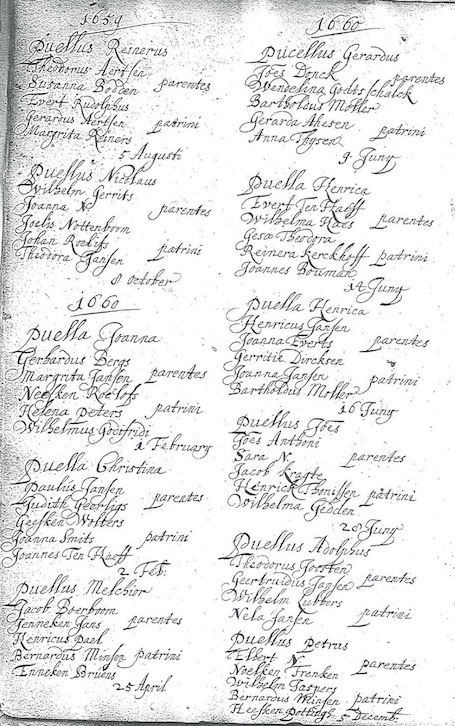 1659
Puellus Reinerus
Theodorus Aertsen
Susanna Bodden parentes
Evert Rudolphus
Gerardus Aertsen patrini
Margrita Reiners
5 Augusti
Puellus Nicolaus
Wilhelm Gerrits
Joanna N. parentes
Joelis Nottenboom
Johan Roeliss patrini
Theodora Jansen
8 October
1660
Puella Joanna
Gerhardus Bergs
Margrita Jansen parentes
Neesken Roelofs
Helena peters patrini
Wilhelmus Godtfridi
1 February
Puella Christina
Paulus Jansen
Judith Geerligs parentes
Geesken Wolters
Joanna Smits patrini
Joannes Ten Haeff
2 Feb.
Puellus Melchior
Jacob Boerboom
Jenneken Jans parentes
Henricus pael
Bernardus Minsen patrini
Enneken Bruens
25 April
1660
Pucellus Gerardus
Joes Donck parentes
Wendelina Godtschalck
Bartholdus Moller
Gerarda Ahesen patrini
Anna Thysen
9 Juny
Puella Henrica
Evert Ten Haeff
Wilhelma Raes parentes
Gesa Theodora
Reinera Kerckhoff patrini
Joannes Bouman
14 Juny
Puella Henrica
Henricus Jansen
Joanna Everts parentes
Gerritie Dircksen
Joanna Jansen patrini
Bartholdus Moller
16 Juny
Puellus Joes
Joes Anthoni
Sara N. parentes
Jacob Kragte
Henrick Thonissen patrini
Wilhelma Gedden
28 Juny
Puellus Adolphus
Theodorus Joosten
Geertruidius Jansen parentes
Wilhelm Lubbers
Nela Jansen patrini
Puellus Petrus
Elbert N.
Noelken Francken parentes
Wilhelm Jaspers
Bernardus Meinsen patrini
Heesken 5 Decemb.